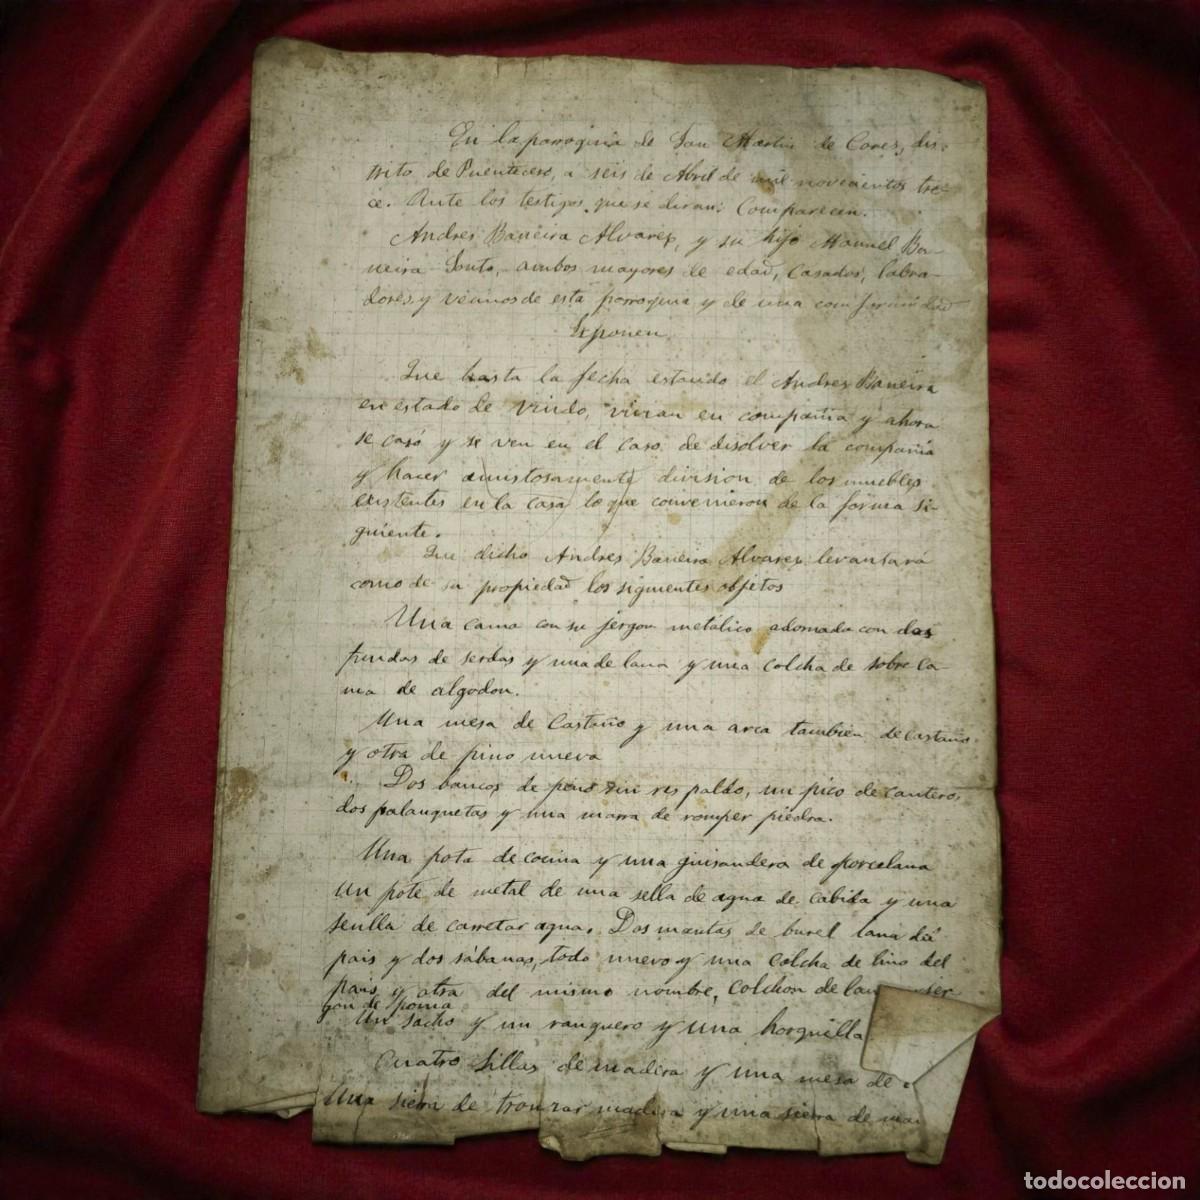 En la parroquia de San Martin de Cores, dis-
trito de Puenteceso, a seis de Abril de mil novecientos tre-
ce. Ante los testigos que se diran: Comparecen.
Andres Baneira Alvarez, y su hijo Manuel Ba-
neira Souto, ambos mayores de edad, casados, labra-
dores y vecinos de esta parroquia y de una conformidad
Exponen
Que hasta la fecha estando el Andres Baneira
en estado de viudo, vivian en compañia y ahora
se casó y se ven en el caso de disolver la compañia
y hacer amistosamente division de los muebles
existentes en la casa lo que convenieron de la forma si-
guiente.
Que dicho Andres Baneira Alvarez levantará
como de su propiedad los siguientes objetos
Una cama con su jergon metálico adornada con dos
fundas de serdas y una de lana y una colcha de sobre ca-
ma de algodon.
Una mesa de Castaño y una arca tambien de castaño
y otra de pino nueva
Dos bancos de pino sin respaldo, un pico de cantero,
dos palanquetas y una marra de romper piedra.
Una pota de cocina y una guisandera de porcelana
un pote de metal de una sella de agua de cabida y una
sellla de carretar agua. Dos mantas de burel lana del
pais y dos sábanas, todo nuevo y una colcha de lino del
pais y otra del mismo nombre, colchon de lana jer
gon de poma
Un sacho y un ranguero y una horquilla
Cuatro sillas de madera y una mesa de
Una sierra de tronzar madera y una sierra de ma
todocoleccion